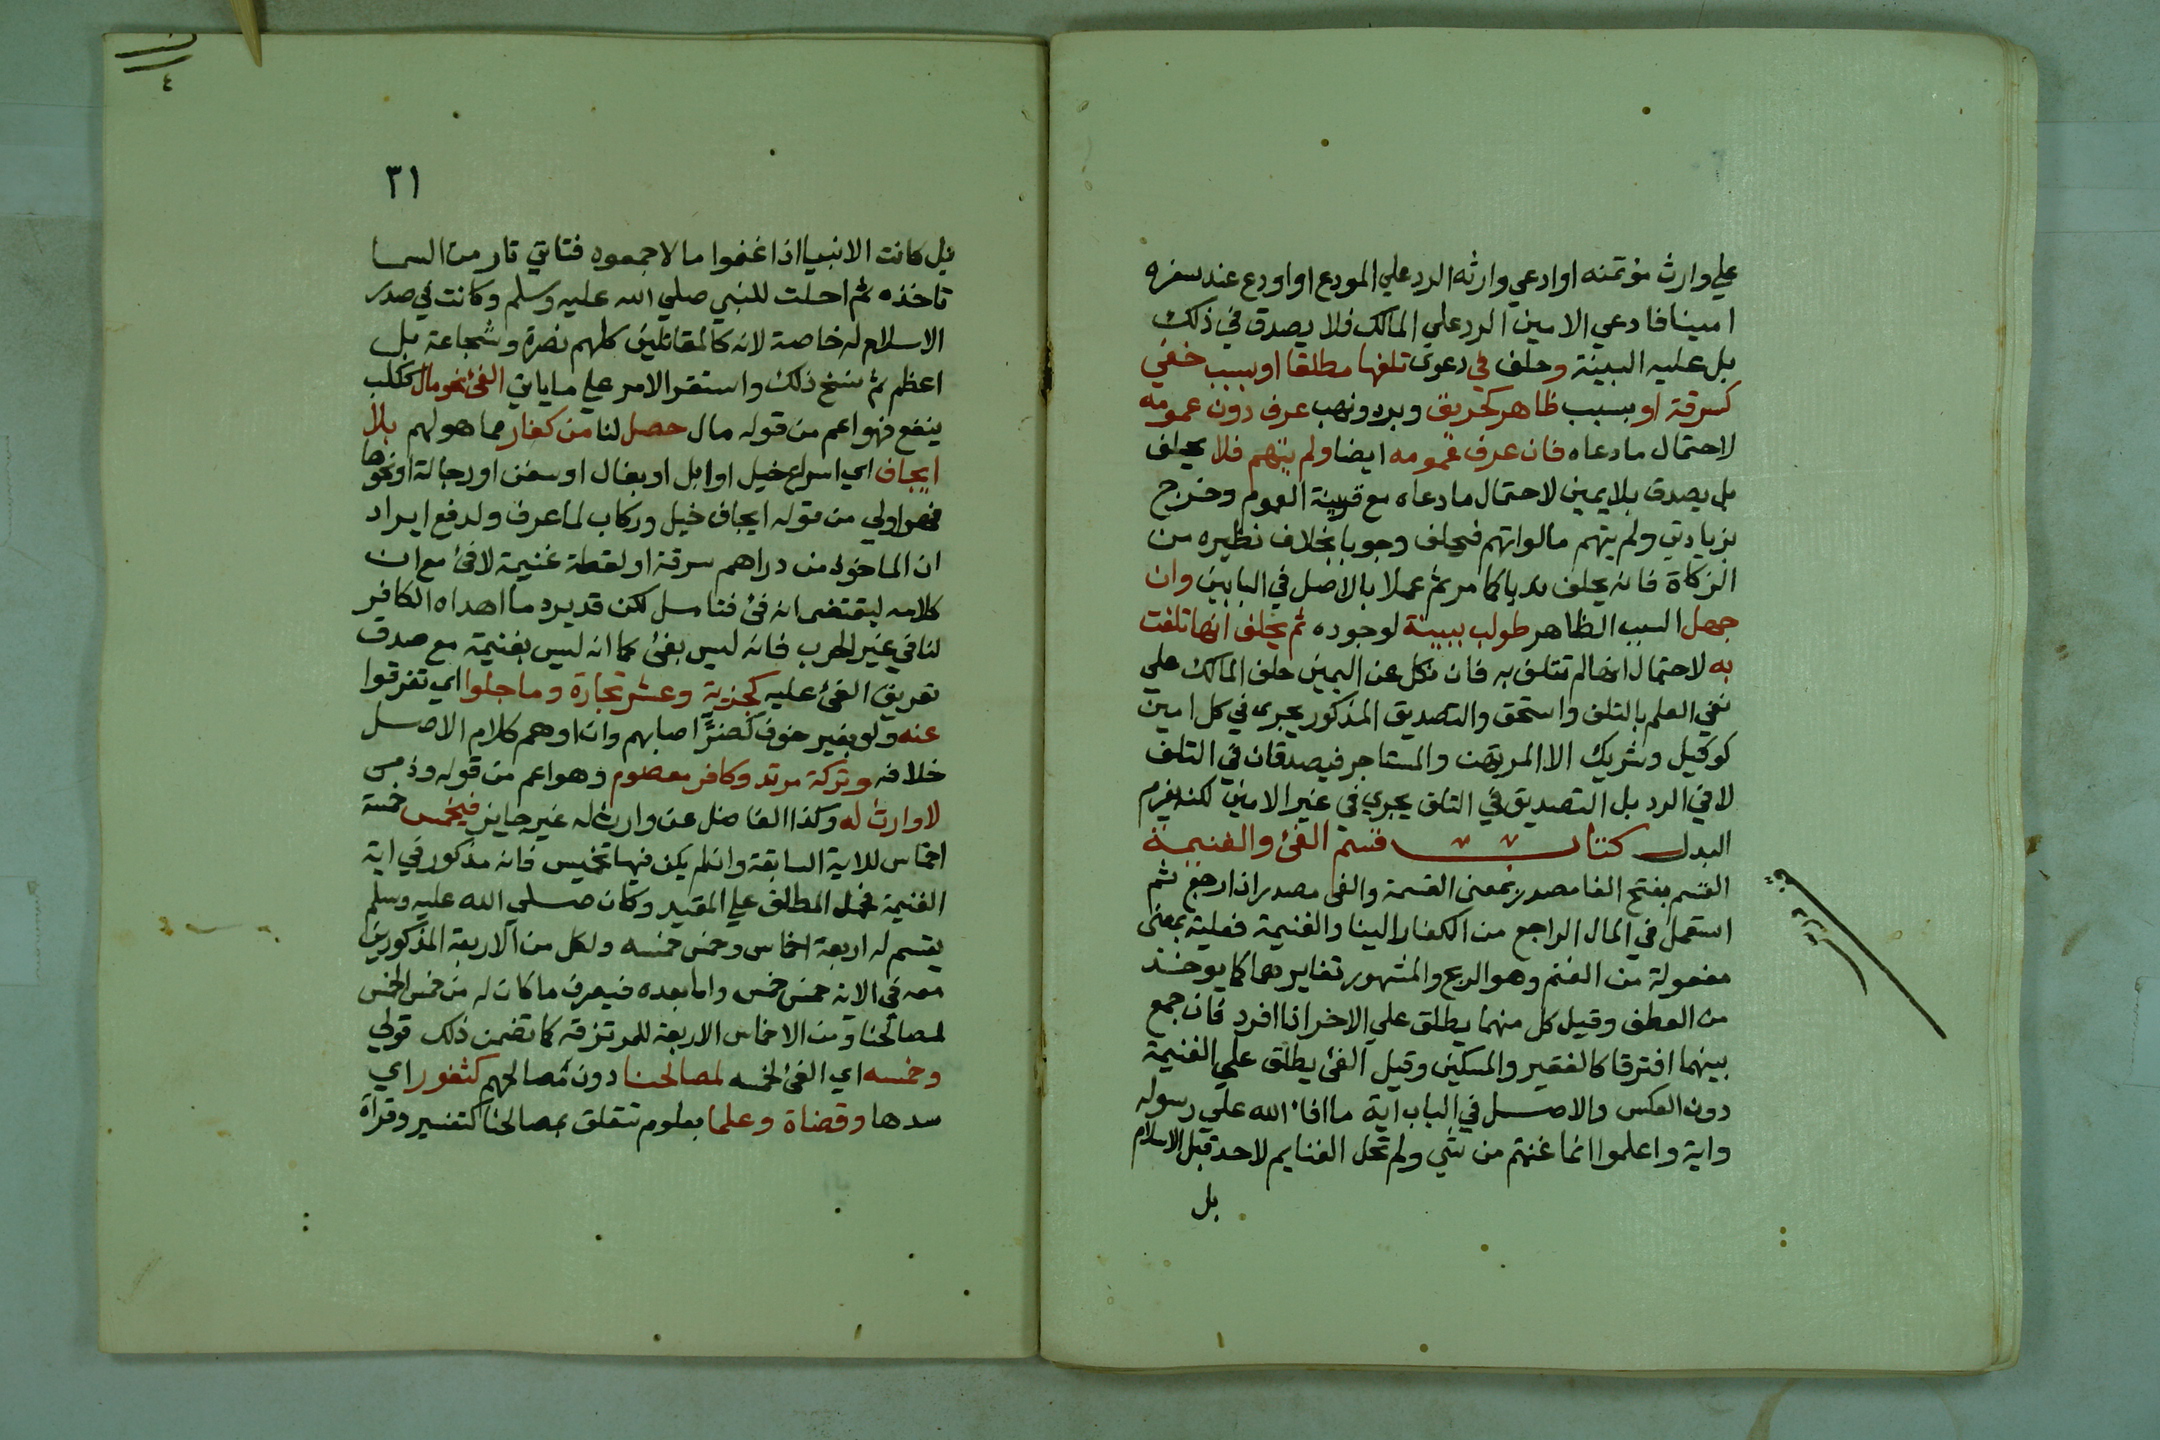 علي وارث مؤتمنه او ادعي وارثه الرد علي المودع او اودع عند سفره
امينا فادعي الامين الرد علي المالك فلا يصدق في ذلك
بل عليه البينة وحلف في دعوي تلفها مطلقا او بسبب خفي
كسرقة او بسبب ظاهر كحريق وبرد ونهب عرف دون عمومه
لاحتمال مادعاه فان عرف عمومه ايضا ولم يتهم فلا يحلف
بل يصدق بلا يمين لاحتمال مادعاه مع قرينة العموم وخرج
بزيادتي ولم يتهم مالواتهم فيحلف وجوبا بخلاف نظيره من
الزكاة فانه يحلف ندبا كما مر ثم عملا بالاصل في البابين وان
جهل السبب الظاهر طولب ببينة لوجوده ثم يحلف انها تلفت
به لاحتمال انها لم تتلف به فان نكل عن اليمين حلف المالك علي
نفي العلم بالتلف واستحق والتصديق المذكور يجري في كل امين
كوكيل وشريك الا المرتهن والمستاجر فيصدقان في التلف
لا في الرد بل التصديق في التلف يجري في غير الامين لكنه يغرم
البدل كتاب قسم الفئ والغنيمة
القسم بفتح القا مصدر بمعني القسمة والفئ مصدر اذا رجع ثم
استعمل في المال الراجع من الكفار الينا والغنيمة فعلية بمعني
مفعولة من الغنم وهو الربح والمشهور تغايرهما كما يوخذ
من العطف وقيل كل منهما يطلق علي الاخر اذا افرد فان جمع
بينهما افترقا كالفقير والمسكين وقيل الفئ يطلق علي الغنيمة
دون العكس والاصل في الباب اية ما افاء الله علي رسوله
واية واعلموا انما غنمتم من شي ولم تحل الغنايم لاحد قبل الاسلام
بل
٤
٣١
بل كانت الانبيا اذا غنموا مالا جمعوه فتاتي نار من السما
تاخذه ثم احلت للنبي صلي الله عليه وسلم وكانت في صدر
الاسلام له خاصة لانه كالمقاتلين كلهم نصرة وشجاعة بل
اعظم ثم نسخ ذلك واستقر الامر علي ماياتي الفئ نحو مال ككلب
ينفع فهو اعم من قوله مال حصل لنا من كفار مما هو لهم بلا
ايجاف اي اسراع خيل او ابل او بغال او سفن او رجالة او نحوها
فهو اولي من قوله ايجاف خيل وركاب لما عرف ولدفع ايراد
ان الماخوذ من دراهم سرقة او لقطة غنيمة لا فئ مع ان
كلامه ليقتضي انه فئ فتامل لكن قد يرد ما اهداه الكافر
لنا في غير الحرب فانه ليس بفئ كما انه ليس بغنيمة مع صدق
تعريف الفئ عليه كجزية وعشر تجارة وما جلوا اي تفرقوا
عنه ولو بغير خوف كضر اصابهم وان اوهم كلام الاصل
خلافه وتركة مرتد وكافر معصوم وهو اعم من قوله وذمي
لا وارث له وكذا الفاضل عن وارث له غير حايز فيخمس خمسة
اخماس للاية السابقة وان لم يكن فيها تخميس فانه مذكور في اية
الغنيمة فحمل المطلق علي المقيد وكان صلي الله عليه وسلم
يقسم له اربعة اخماس وخمس خمسه ولكل من الاربعة المذكورين
معه في الاية خمس خمس واما بعده فيصرف ما كان له من خمس الخمس
لمصالحنا ومن الاخماس الاربعة للمرتزقة كما تضمن ذلك قولي
وخمسه اي الفئ الخمسه لمصالحنا دون مصالحهم كثغور اي
سدها وقضاة وعلما بعلوم تتعلق بمصالحنا كتفسير وقراة